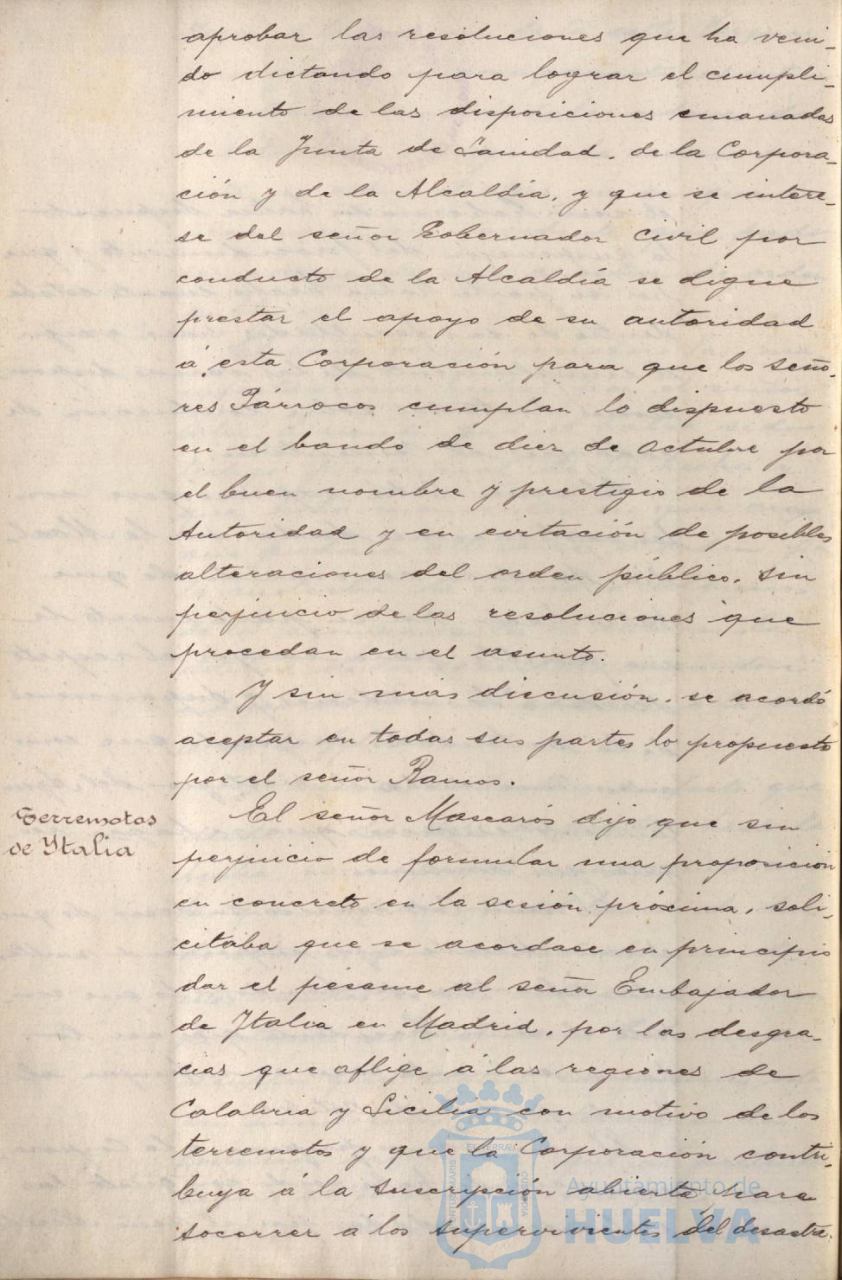 aprobar las resoluciones que ha veni-
do dictando para lograr el cumpli-
miento de las disposiciones emanadas
de la Junta de Sanidad, de la Corpora-
ción y de la Alcaldía, y que se intere-
se del señor Gobernador civil por
conducto de la Alcaldía se digne
prestar el apoyo de su autoridad
á esta Corporación para que los seño-
res Párrocos cumplan lo dispuesto
en el bando de diez de Octubre por
el buen nombre y prestigio de la
Autoridad y en evitación de posibles
alteraciones del orden público, sin
perjuicio de las resoluciones que
procedan en el asunto.
Y sin más discusión, se acordó
aceptar en todas sus partes lo propuesto
por el señor Ramos.
Terremotos
de Italia
El señor Mascarós dijo que sin
perjuicio de formular una proposición
en concreto en la sesión próxima, soli-
citaba que se acordase en principio
dar el pésame al señor Embajador
de Italia en Madrid, por las desgra-
cias que aflige á las regiones de
Calabria y Sicilia con motivo de los
terremotos y que la Corporación contri-
buya á la suscripción abierta para
socorrer á los supervivientes del desastre.
Ayuntamiento de
HUELVA